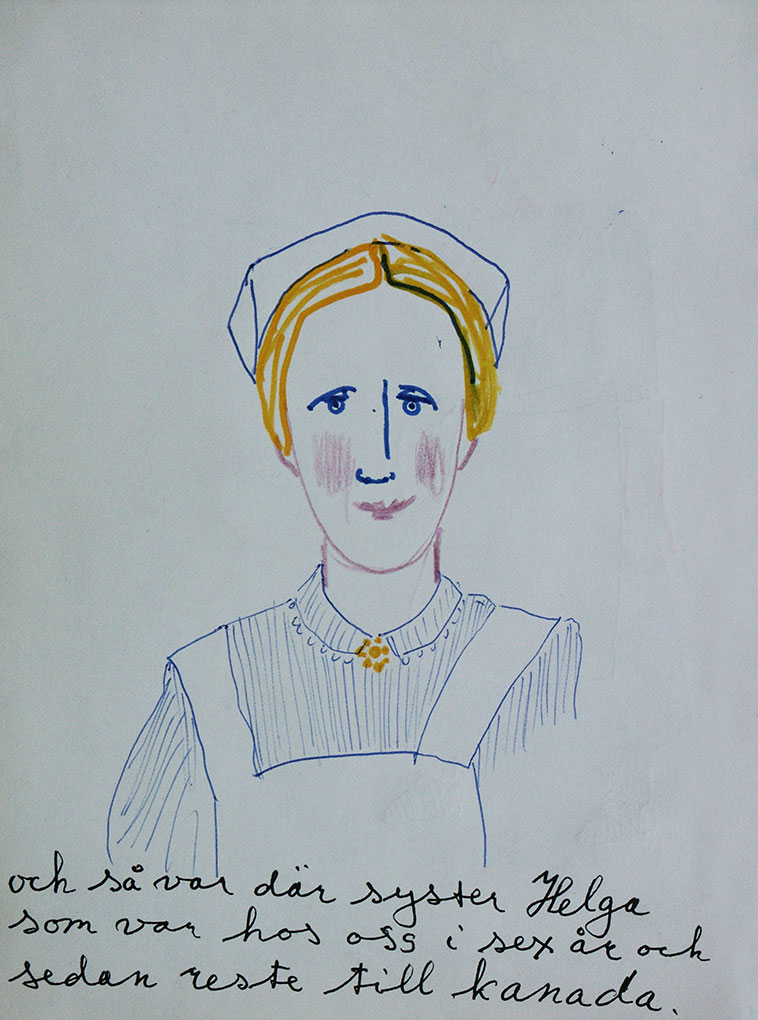 och så var där syster Helga
som var hos oss i sex år och
sedan reste till kanada.